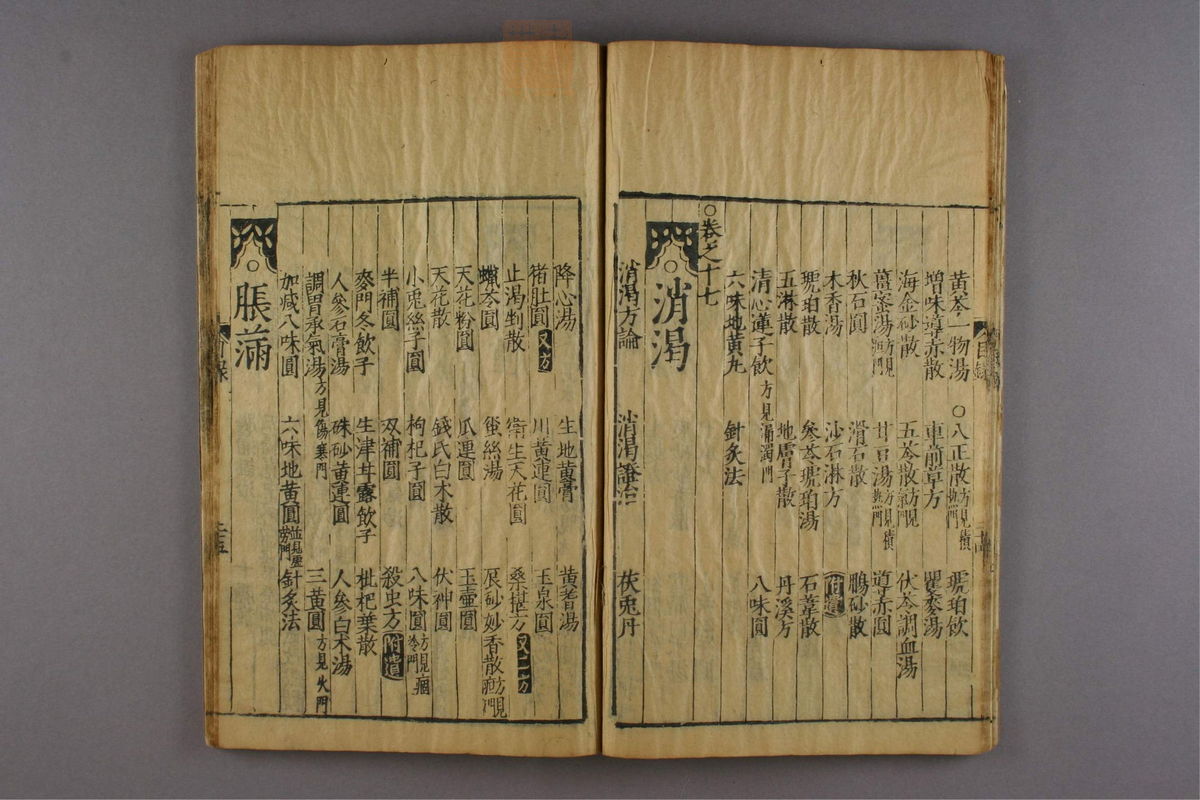 黃芩一物湯 ○八正散方見積熱門 琥珀飲
增味導赤散 車前草方 瞿麥湯
海金砂散 五苓散方見門 伏苓調血湯
薑蜜湯方見門 甘豆湯方見積熱門 導赤圓
秋石圓 滑石散 鵬砂散
木香湯 沙石淋方 附遺
琥珀散 參苓琥珀湯 石葦散
五淋散 地膚子散 丹溪方
清心蓮子飲方見漏濁門 八味圓
六味地黃丸 針灸法
○卷之十七
○消渴
消渴方論 消渴證治 茯兎丹
降心湯 生地黃膏 黃耆湯
猪肚圓又方 川黃連圓 玉泉圓
止渴剉散 衛生天花圓 桑椹方又二方
蠟苓圓 蚕絲湯 辰砂妙香散方見門
天花粉圓 瓜連圓 玉壺圓
天花散 錢氏白朮散 伏神圓
小兎絲子圓 枸杞子圓 八味圓方見痼冷門
半補圓 双補圓 殺虫方附遺
麥門冬飲子 生津甘露飲子 枇杷葉散
人參石膏湯 硃砂黃連圓 人參白朮湯
調胃承氣湯方見傷寒門 三黃圓方見火門
加减八味圓 六味地黃圓並見虛勞門 針灸法
○脹滿